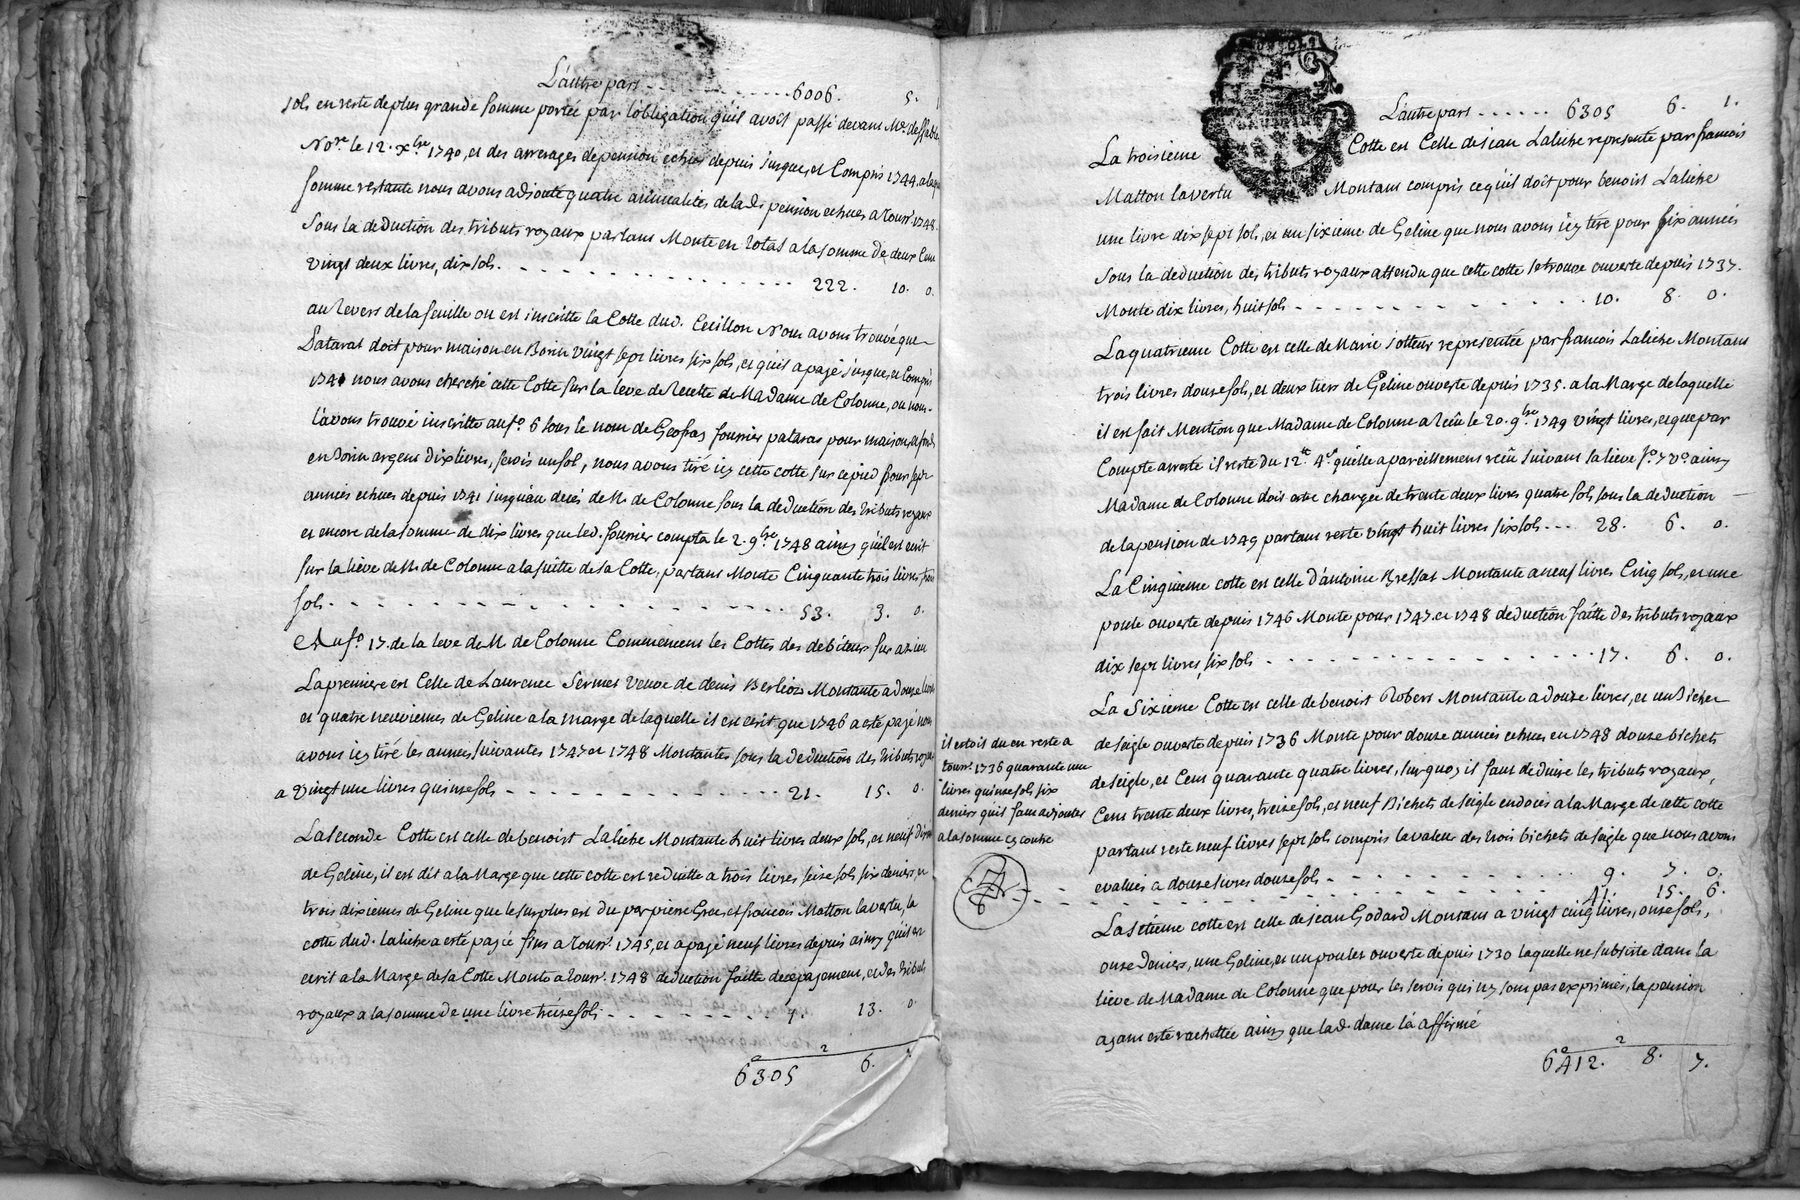 L'autre part - - - - - - 6006. 5. 1
sols en reste de plus grande somme portée par l'obligation qu'il avoit passé devant Me. dessable
Nore. le 12. xbre 1740, et des arrerages de pension echus depuis jusques, et Compris 1744. a laque
somme restante nous avons adjouté quatre annualités de lad. pension echues a Tousnt. 1748.
sous la deduction des tributs royaux partant Monte en total a la somme de deux Cent
vingt deux livres, dix sols. - - - - - - 222. 10. 0.
au revers de la feuille ou est inscritte la Cotte dud. Cecillon Nous avons trouvé que
Patarat doit pour maison en Borin vingt sept livres six sols, et qu'il a payé jusque, et Compris
1740 nous avons cherché cette Cotte sur la leve de recette de Madame de Colonne, ou nous
l'avons trouvé inscritte au fo. 6 sous le nom de Geofras fournier pataras pour maison, et fonds
en Borin argent dix livres, servis un sol, nous avons tiré icy cette cotte sur ce pied pour sept
années echues depuis 1741 jusqu'au decés de M. de Colonne sous la deduction des tributs royaux
et encore de la somme de dix livres que led. fournier compta le 2. 9bre. 1748 ainsy qu'il est ecrit
sur la liève de M. de Colonne a la suitte de sa Cotte, partant Monte Cinquante trois livres, trois
sols - - - - - - 53. 3. 0.
Au fo. 17. de la leve de M de Colonne Commencent les Cottes des debiteurs sur azieu
La premiere est Celle de Laurence Sermet veuve de denis Berlioz Montante a douze livres
et quatre neuviemes de Geline a la marge de laquelle il est ecrit que 1746 a esté payé nous
avons icy tiré les années suivantes 1747 et 1748 Montantes sous la deduction des tributs royaux
a vingt une livres quinze sols - - - - - - 21. 15. 0.
La seconde Cotte est celle de benoist Laliche Montante huit livres deux sols, et neuf dixmes
de Geline, il est dit a la Marge que cette cotte est reduitte a trois livres seize sols six deniers, et
trois dixiemes de Geline que le surplus est du par pierre Gros, et françois Matton lavertu, la
cotte dud. Laliche a esté payée fins a Tousnt. 1745, et a payé neuf livres depuis ainsy qu'il est
ecrit a la Marge de sa Cotte Monte a Tousnt. 1748 deduction faitte de ce payement, et des tributs
royaux a la somme de une livre treize sols - - - - - - 1. 13. 0.
6305 6. 1
L'autre part - - - - - - 6305 6. 1.
La troisieme Cotte est Celle de jean Laliche representé par françois
Matton lavertu Montant compris ce qu'il doit pour benoist Laliche
une livre dix sept sols, et un sixieme de Geline que nous avons icy tiré pour six années
sous la deduction des tributs royaux attendu que cette cotte se trouve ouverte depuis 1737.
Monte dix livres, huit sols - - - - - - 10. 8. 0.
La quatrieme Cotte est celle de Marie Jotteur representée par francois Laliche Montant
trois livres douze sols, et deux tiers de Geline ouverte depuis 1735. a la Marge de laquelle
il est fait Mention que Madame de Colonne a recû le 20. 9bre 1749 vingt livres, et que par
Compte arresté il reste du 12lt 4s. qu'elle a pareillement recû suivant sa liève fo. 7 vo ainsy
Madame de Colonne doit estre chargée de trente deux livres quatre sols sous la deduction
de la pension de 1749 partant reste vingt huit livres six sols - - - 28. 6. 0.
La Cinquieme cotte est celle d'antoine Bressat Montante a neuf livres Cinq sols, et une
poule ouverte depuis 1746 Monte pour 1747. et 1748 deduction faitte des tributs royaux
dix sept livres, six sols - - - - - - 17. 6. 0.
La Sixieme Cotte est celle de benoist Robert Montante a douze livres, et un Bichet
de seigle ouverte depuis 1736 Monte pour douze années echues en 1748 douze bichets
de seigle, et Cent quarante quatre livres, sur quoy il faut deduire les tributs royaux,
Cent trente deux livres, treize sols, et neuf Bichets de seigle endocés a la Marge de cette cotte
partant reste neuf livres sept sols compris la valeur des trois bichets de seigle que nous avons
evalués a douze livres douze sols - - - - - - 9. 7. 0.
il estoit du en reste a
Tousnt. 1736 quarante une
livres quinze sols six
deniers qu'il faut adjouter
a la somme cy contre
- - - - - - 41. 15. 6.
La sétieme cotte est celle de jean Godard Montant a vingt cinq livres, onze sols,
onze deniers, une Geline, et un poulet ouverte depuis 1730 laquelle ne subsiste dans la
liève de Madame de Colonne que pour les servis qui n'y sont pas exprimés, la pension
ayant esté rachettée ainsy que lad. dame l'a affirmé
6412. 8. 7.